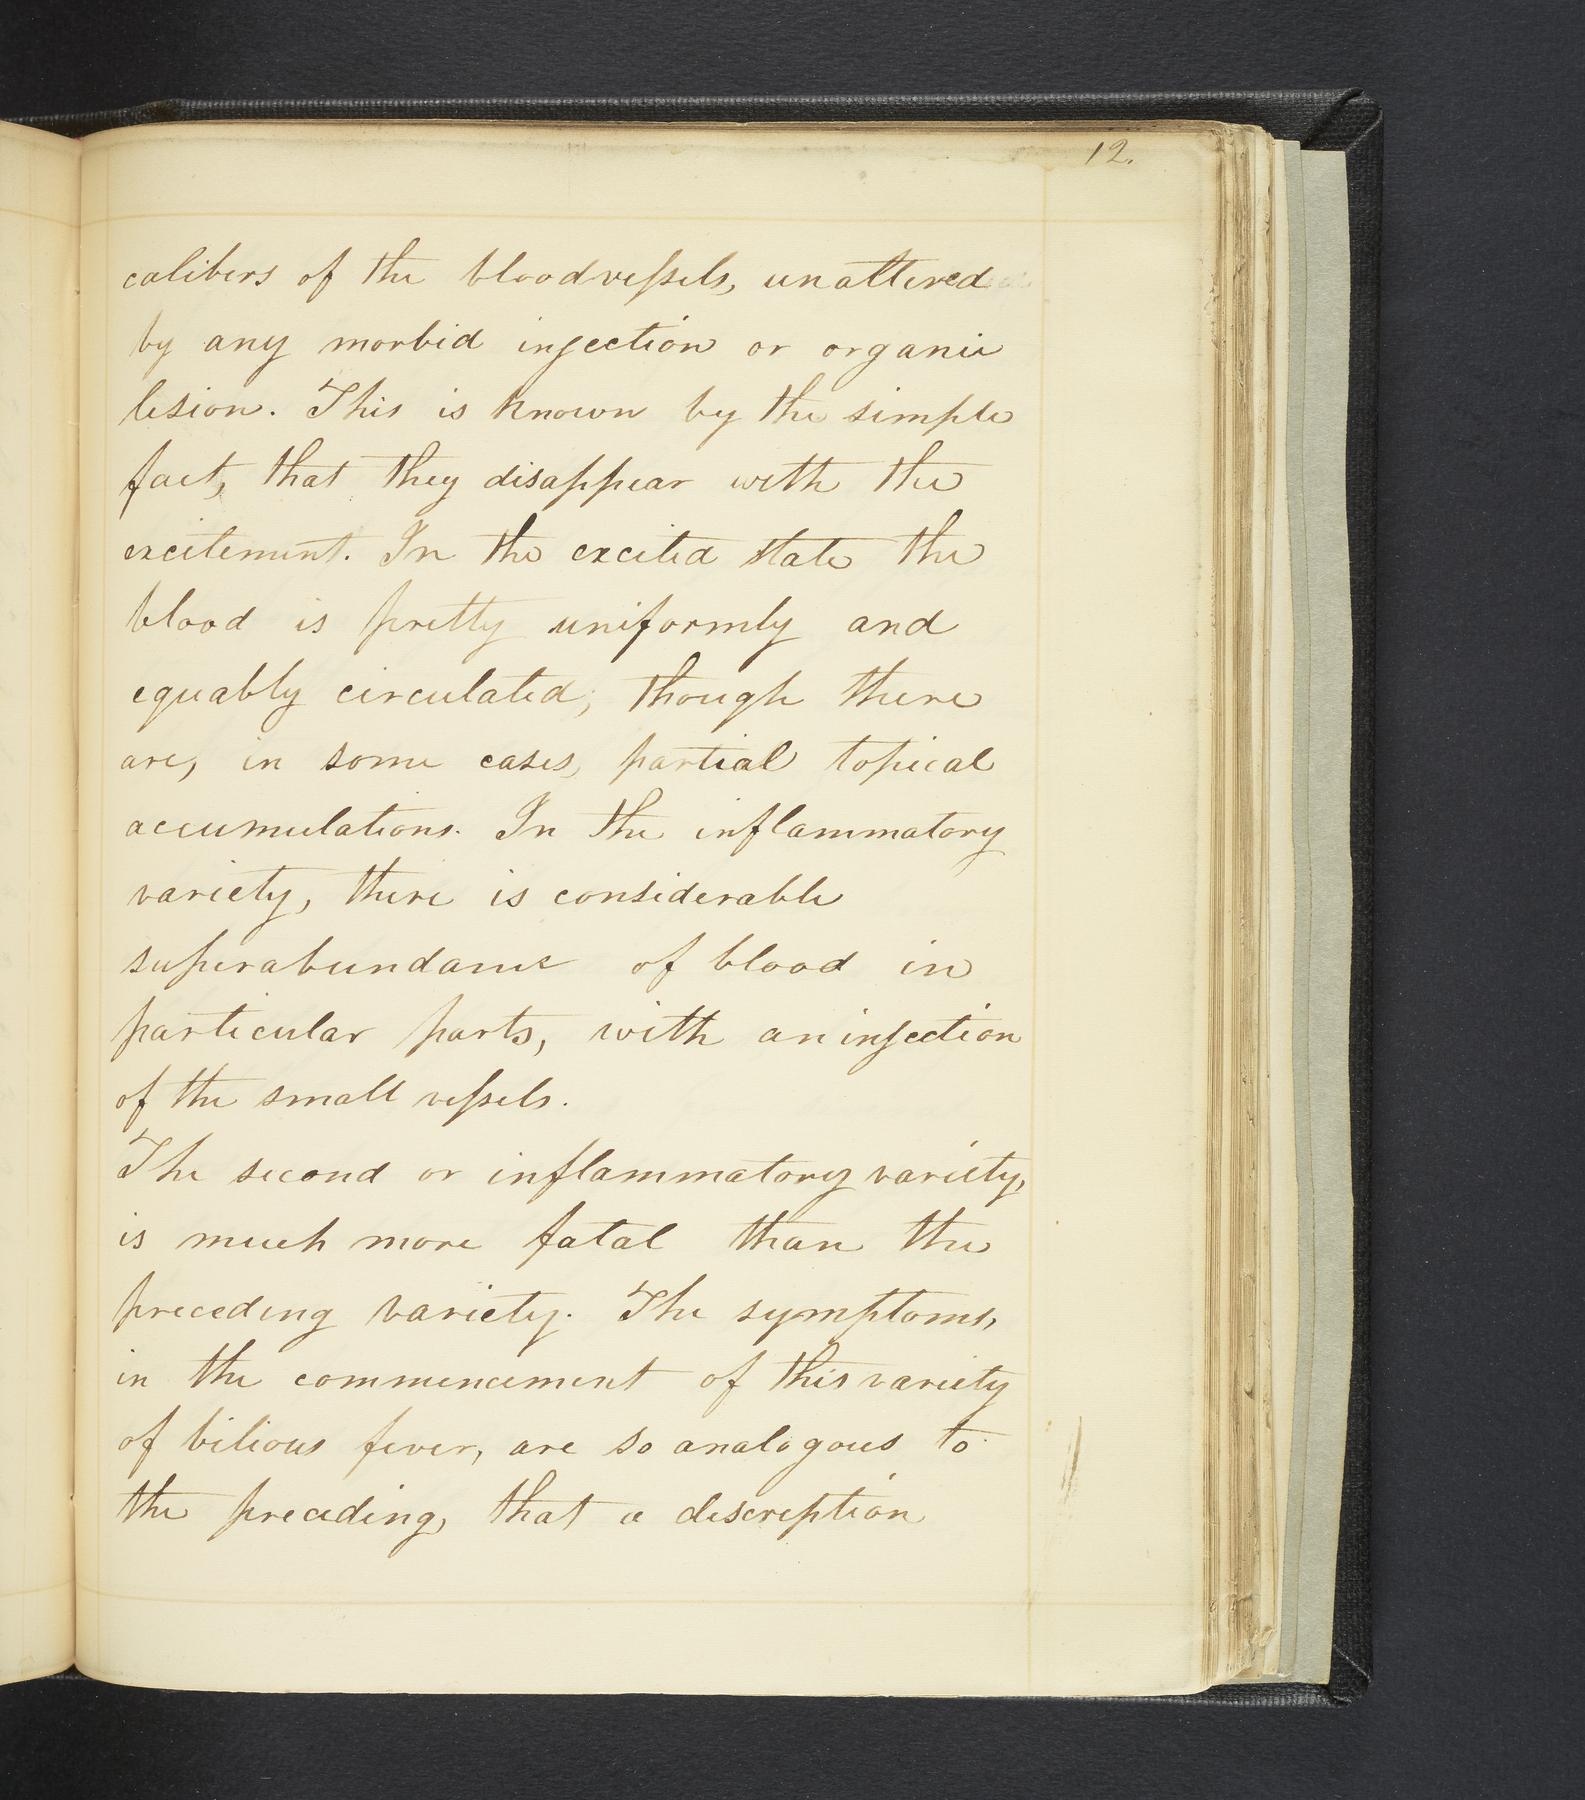 12.
calibers of the bloodvessels, unattered
by any morbid injection or organic
lesion. This is known by the simple
fact, that they disappear with the
excitement. In the excited state the
blood is pretty uniformly and
equably circulated; though there
are, in some cases, partial topical
accumulations. In the inflammatory
variety, there is considerable
superabundance of blood in
particular parts, with an injection
of the small vessels.
The second or inflammatory variety,
is much more fatal than the
preceding variety. The symptoms,
in the commencement of this variety
of bilious fever, are so analogous to
the preceding, that a discreption